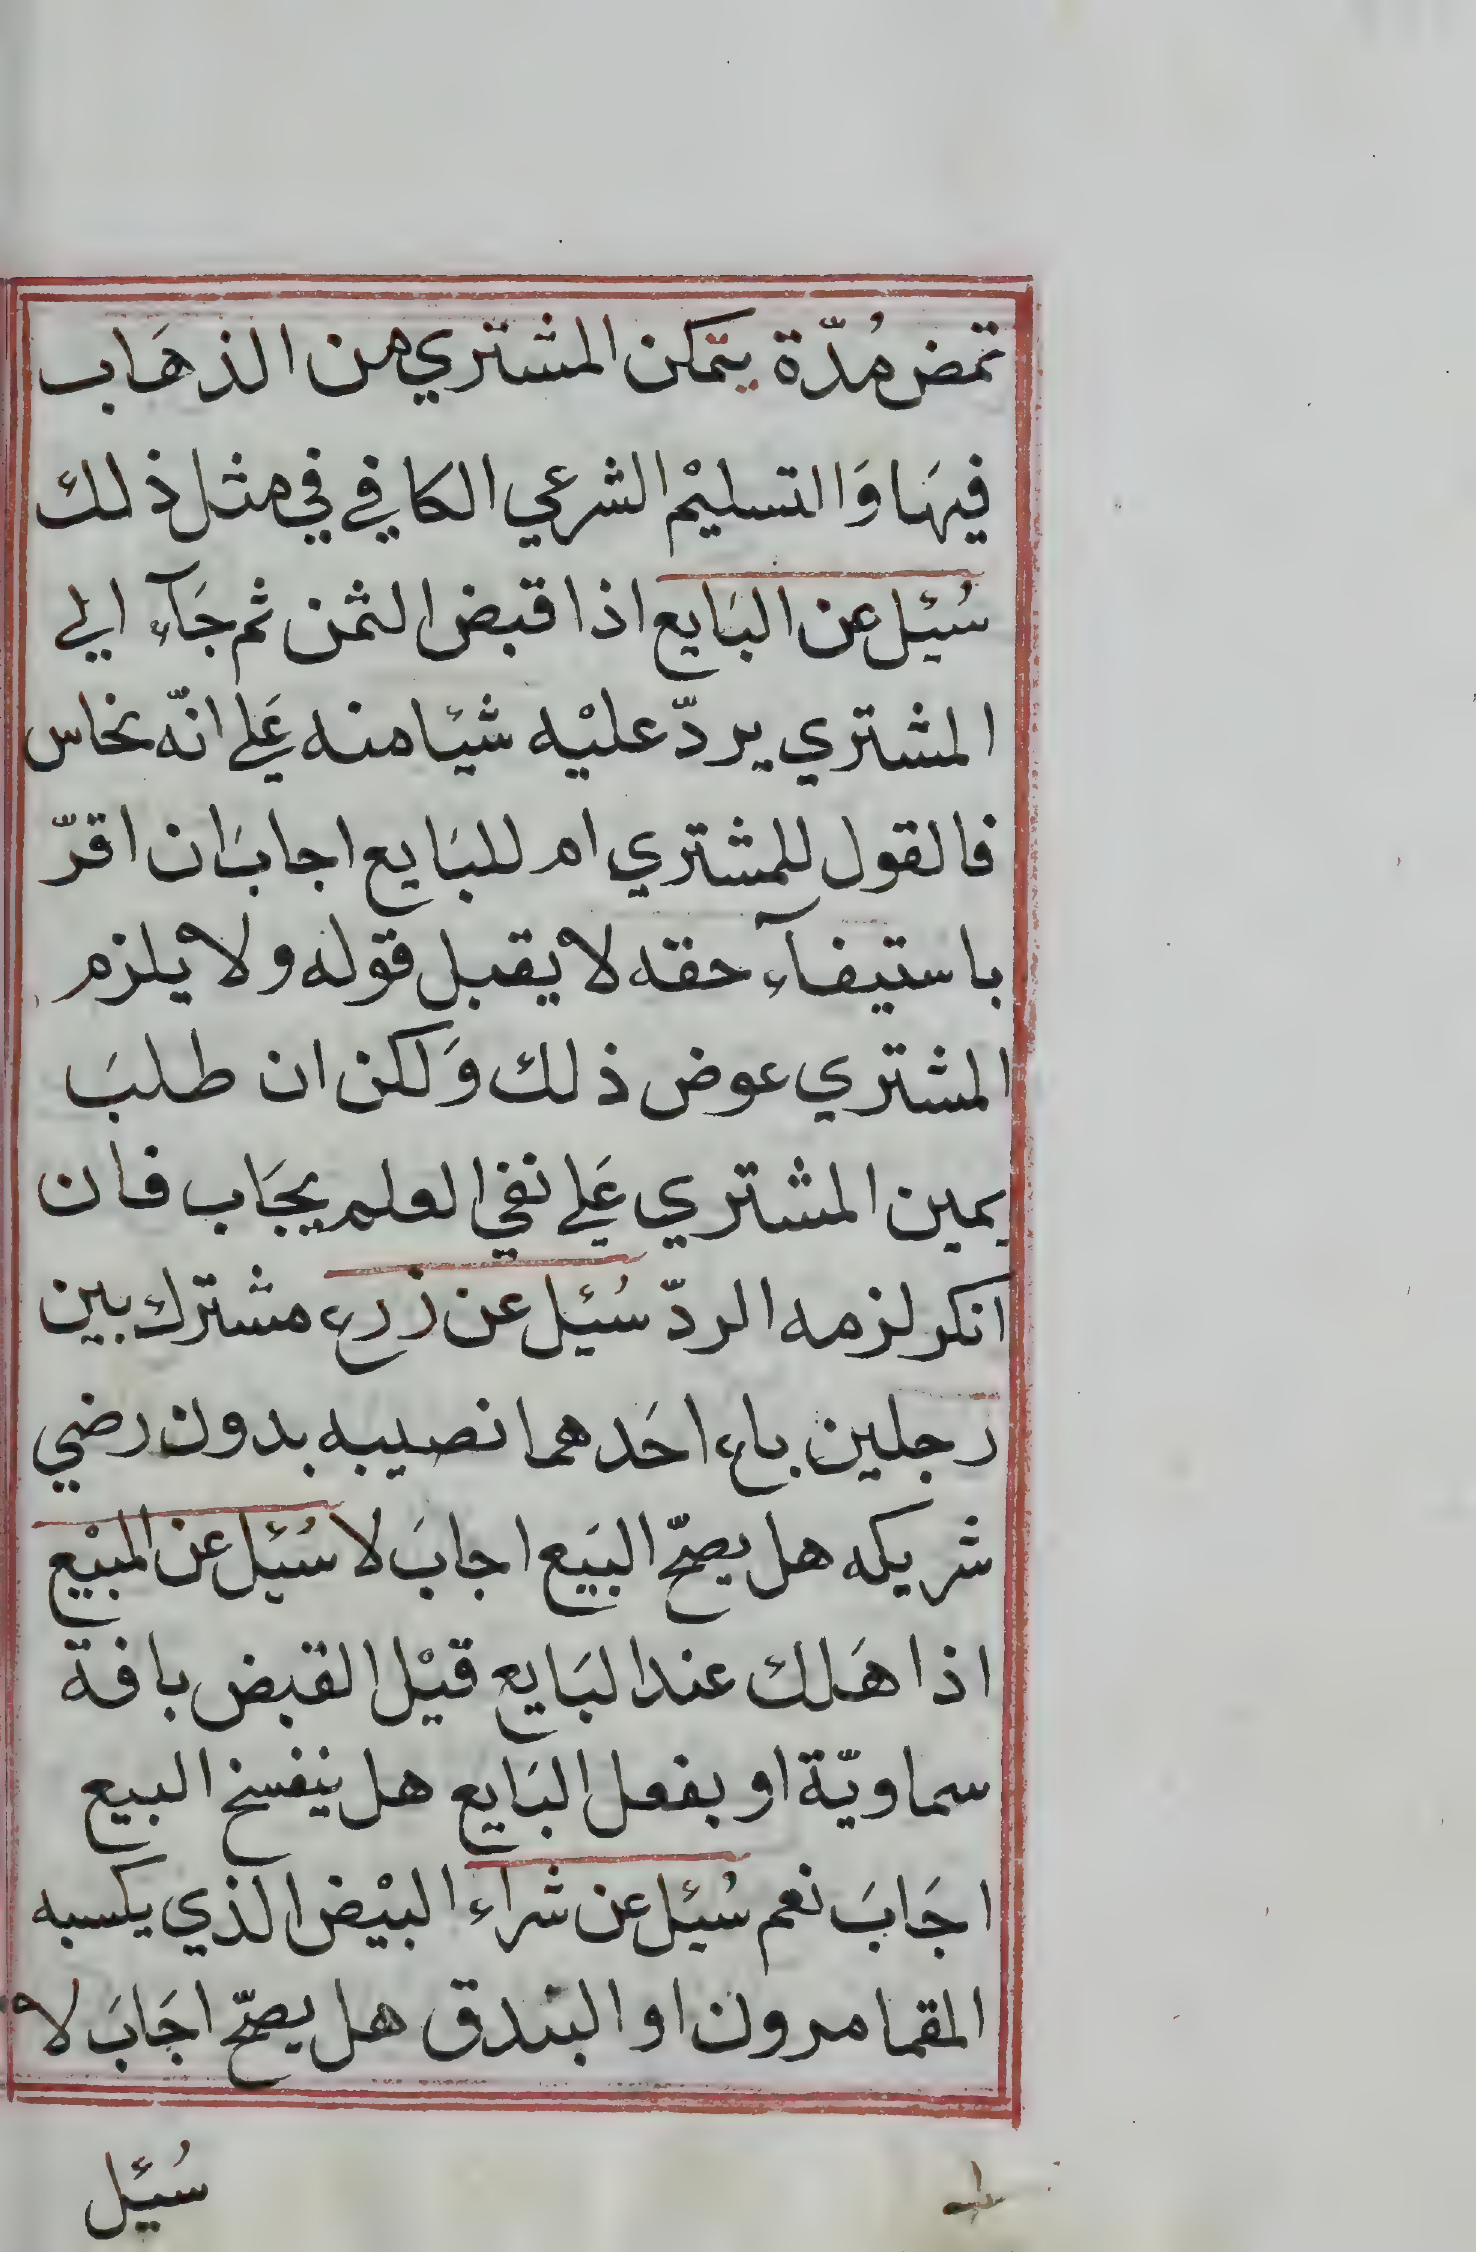 تمض مُدّة يتمكن المشتري من الذهَاب
فيهَا وَالتسليْم الشرعي الكافي في مثل ذلك
سُئيل عن البَايع اذا قبض الثمن ثم جَآء الي
المشتري يردّ عليْه شيئا منه عَلي انّه نحاس
فالقول للمشتري ام للبَايع اجابَ ان اقرّ
باستيفآء حقه لا يقبل قوله ولا يلزم
المشتري عوض ذلك وَلكن ان طلبَ
يمين المشتري عَلي نفي العلم يجَاب فان
انكر لزمه الردّ سُئيل عن زرع مشترك بين
رجلين باع احَدهما نصيبه بدون رضي
شريكه هل يصحّ البَيع اجابَ لا سُئيل عن المبيْع
اذا هَلك عند البَايع قبْل القبض بافة
سماويّة او بفعل البَايع هل ينفسخ البيع
اجَابَ نعم سُئيل عن شراء البيْض الذي يكسبه
المقامرون او البندق هل يصحّ اجَابَ لا
سُئيل